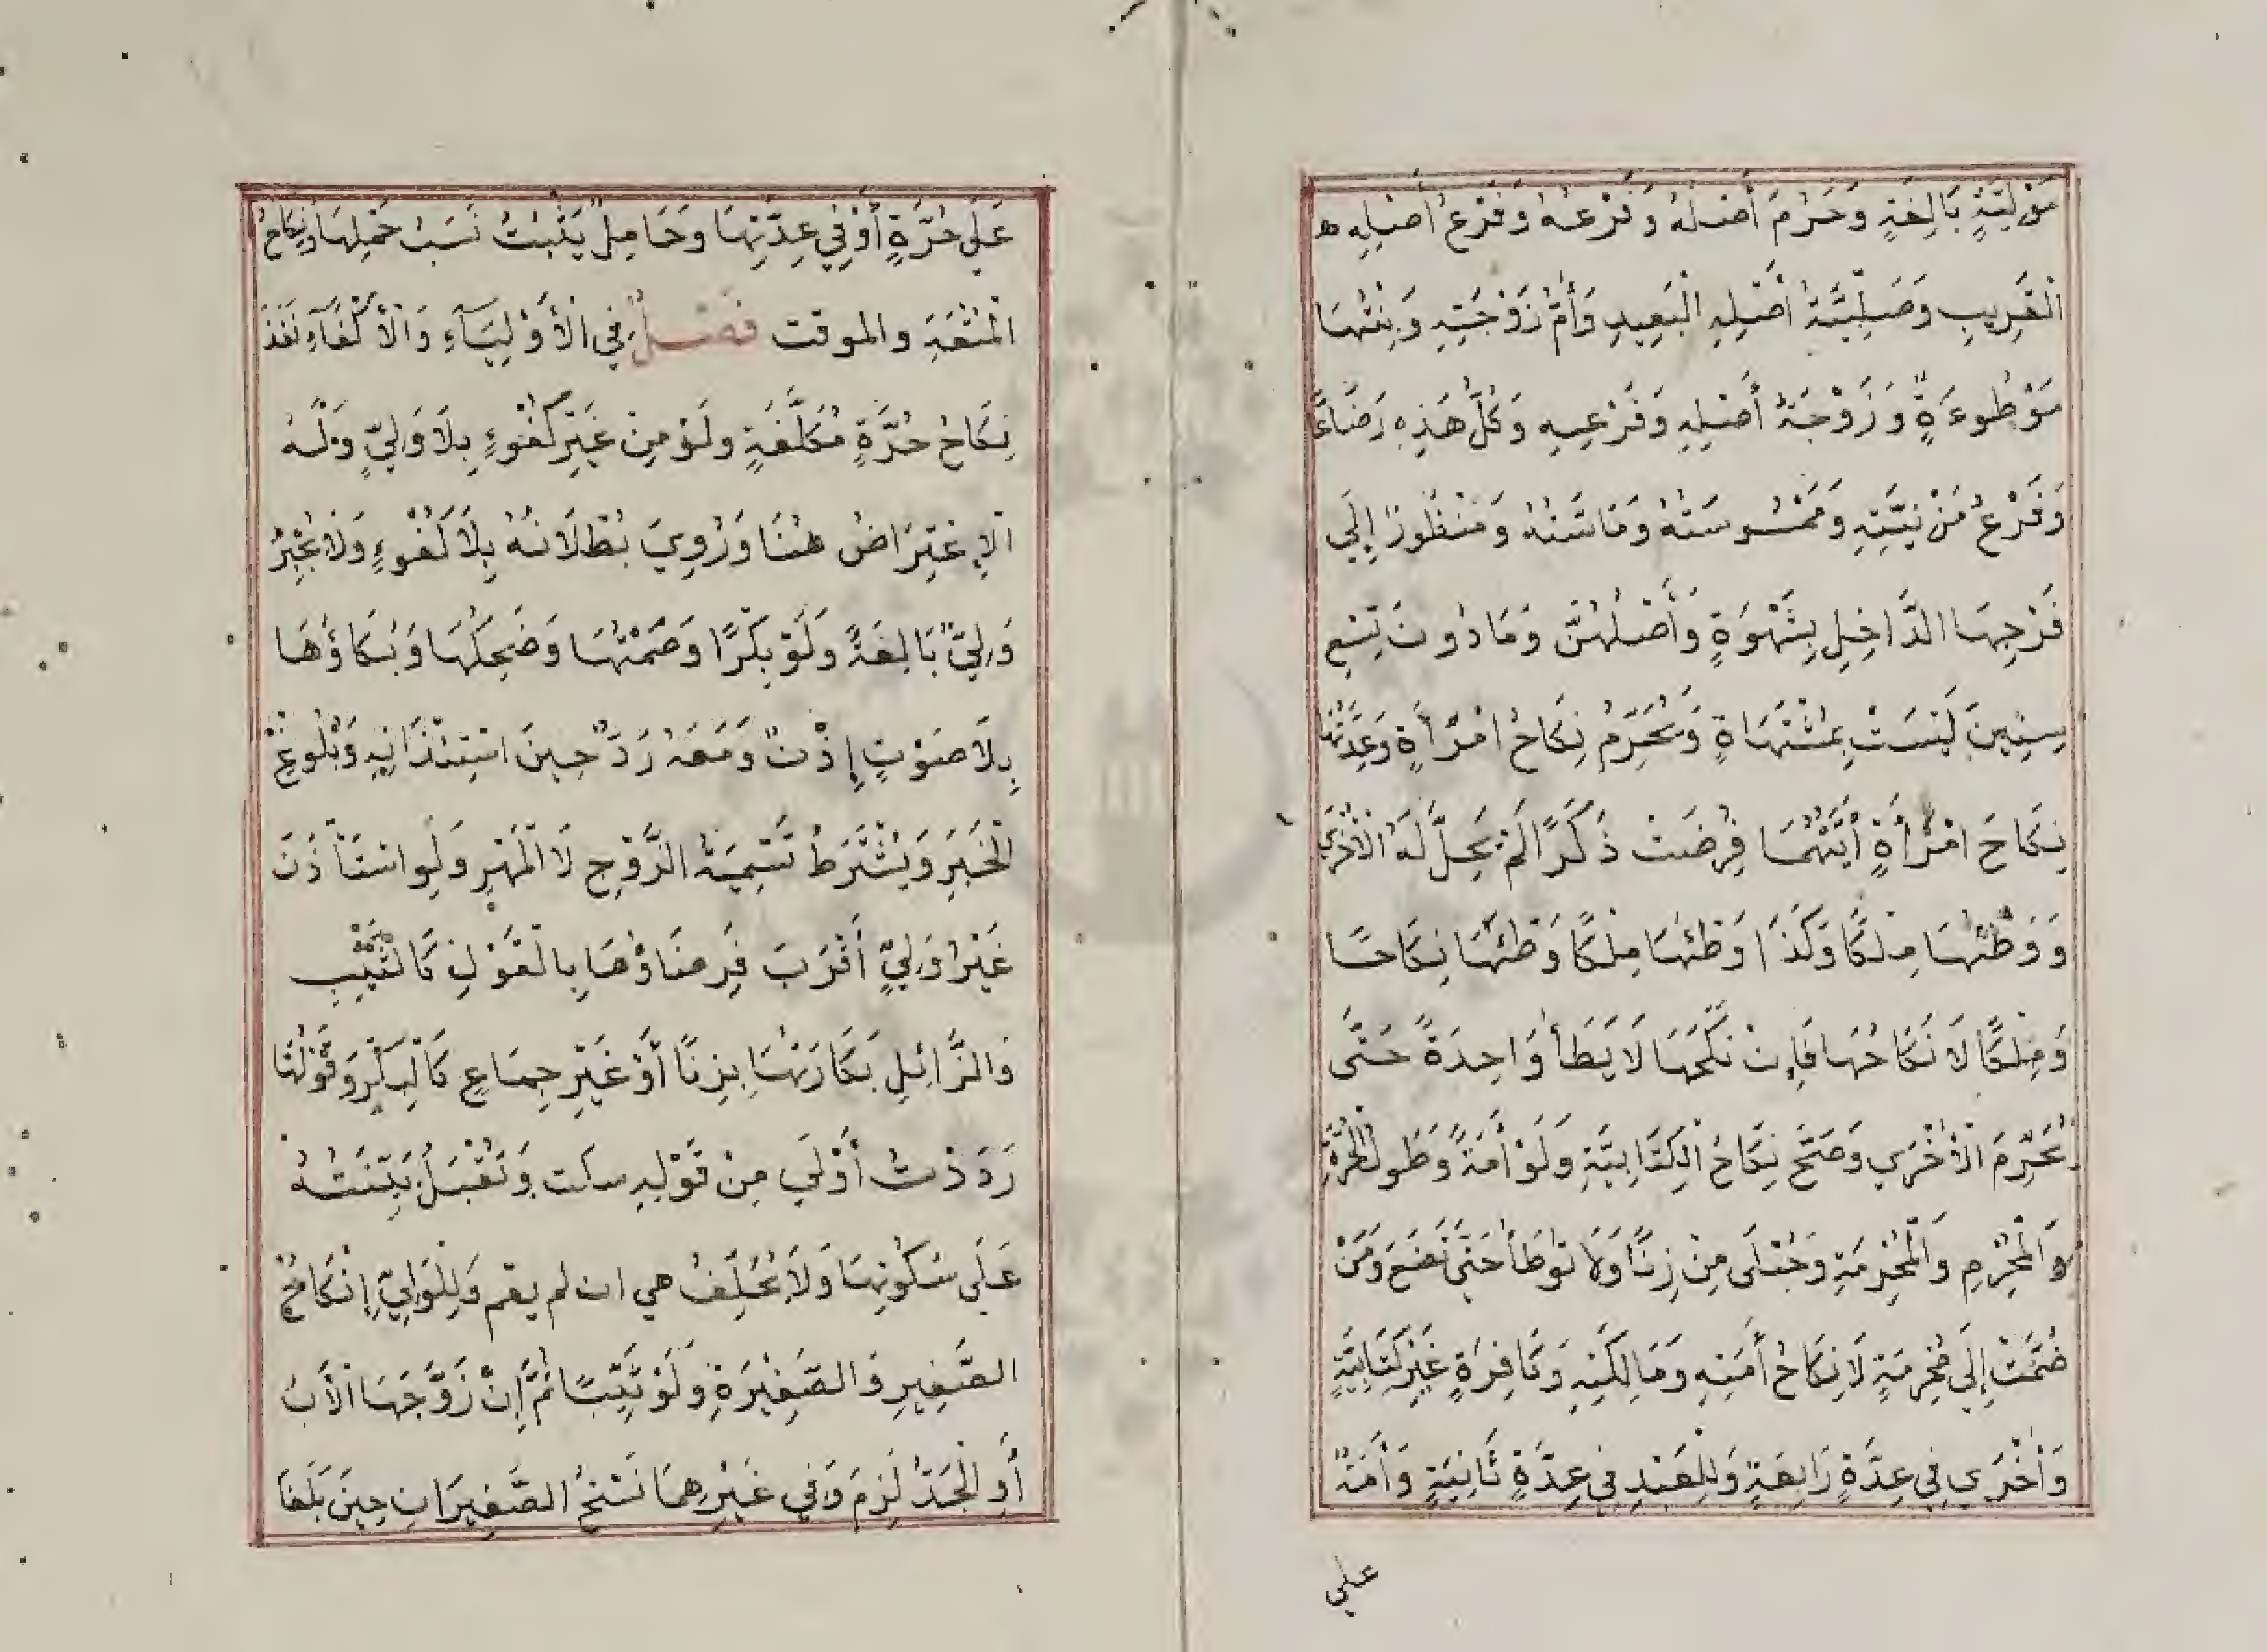 مَوْلِيَّةٍ بَالِغَةٍ وَحَرُمَ أَصْلُهُ وَفَرْعُهُ وَفَرْعُ أَصْلِهِ
الْقَرِيبِ وَصُلْبِيَّةُ أَصْلِهِ الْبَعِيدِ وَأُمُّ زَوْجَتِهِ وَبِنْتُهَا
مَوْطُوءَةٍ وَزَوْجَةُ أَصْلِهِ وَفَرْعِهِ وَكُلُّ هَذِهِ رَضَاعًا
وَفَرْعُ مَزْنِيَّتِهِ وَمَمْسُوسَتُهُ وَمَاسَّتُهُ وَمَنْظُورًا إِلَى
فَرْجِهَا الدَّاخِلِ بِشَهْوَةٍ وَأَصْلُهُنَّ وَمَادُونَ تِسْعِ
سِنِينَ لَيْسَتْ بِمُشْتَهَاةٍ وَيُحَرِّمُ نِكَاحُ امْرَأَةٍ وَعِدَّتُهَا
نِكَاحَ امْرَأَةٍ أَيَّتُهُمَا فُرِضَتْ ذَكَرًا لَمْ يَحِلَّ لَهُ الْأُخْرَى
وَوَطْئُهَا مِلْكًا وَكَذَا وَطْئُهَا مِلْكًا وَطْئَهَا نِكَاحًا
وَمِلْكًا لَا نَكَاحُهَا فَإِنْ نَكَحَهَا لَا يَطَأُ وَاحِدَةً حَتَّى
يُحَرِّمَ الْأُخْرَي وَصَحَّ نِكَاحُ الْكِتَابِيَّةِ وَلَوْ أَمَةً وَطَولُ الْحُرَّةِ
وَالْمُحْرِمِ وَالْمُحْرِمَةِ وَحُبْلَى مِنْ زِنًا وَلَا تُوطَأُ حَتَّى تَضَعَ وَمَنْ
ضُمَّتْ إِلَى مُحْرِمَةٍ لَا نِكَاحُ أَمَتِهِ وَمَالِكَتِهِ وَكَافِرَةٍ غَيْرِ كِتَابِيَّةٍ
وَأُخْرَي فِي عِدَّةِ رَابِعَةٍ وَلِلْعَبْدِ فِي عِدَّةِ ثَانِيَةٍ وَأَمَةٌ
علي
عَلَى حُرَّةٍ أَوْ فِي عِدَّتِهَا وَحَامِلٌ يَثْبُتُ نَسَبُ حَمْلِهَا وَنِكَاحُ
الْمُتْعَةِ والموقت فَصْلٌ فِي الْأَوْلِيَاءِ وَالْأَكْفَاءِ نَفَذَ
نِكَاحُ حُرَّةٍ مُكَلَّفَةٍ وَلَوْ مِنْ غَيْرِ كُفُوءٍ بِلَا وَلِيٍّ وَلَهُ
الْاِعْتِرَاضُ هُنَا وَرُوِيَ بُطْلَانُهُ بِلَا كُفُوءٍ وَلَا يُجْبِرُ
وَلِيٌّ بَالِغَةً وَلَوْ بِكْرًا وَصَمْتُهَا وَضَحِكُهَا وَبُكَاؤُهَا
بِلَا صَوْتٍ إِذْنٌ وَمَعَهُ رَدٌّ حِينَ اسْتِئْذَانِهِ وَبُلُوغِ
الْخَبَرِ وَيُشْتَرَطُ تَسْمِيَةُ الزَّوْجِ لَا الْمَهْرِ وَلَوِ اسْتَأْذَنَ
غَيْرُ وَلِيٍّ أَقْرَبَ فَرِضَاؤُهَا بِالْقَوْلِ كَالثَّيِّبِ
وَالزَّائِلِ بَكَارَتُهَا بِزِنًا أَوْ غَيْرِ جِمَاعٍ كَالْبِكْرِ وَقَوْلُهَا
رَدَدْتُ أَوْلَى مِنْ قَوْلِهِ سكت وَتُقْبَلُ بَيِّنَتُهُ
عَلَى سُكُوتِهَا وَلَا يُحَلِّفُ هي ان لم يقم وَلِلْوَلِيِّ إِنْكَاحُ
الصَّغِيرِ وَالصَّغِيرَةِ وَلَوْ ثَيِّبًا ثُمَّ إِنْ زَوَّجَهَا الْأَبُ
أَوِ الْجَدُّ لَزِمَ وَفِي غَيْرِهِمَا فَسْخُ الصَّغِيرَانِ حِينَ بَلَغَا